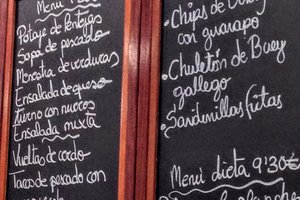 Menú
Potaje de lentejas
Sopa de pescado
Menestra de verduras
Ensalada de queso
tierno con nueces
Ensalada mixta
Vueltas de cerdo
Tacos de pescado con
Chips de
con guarapo
Chuletón de Buey
gallego
Sardinillas fritas
Menú dieta 9'30€